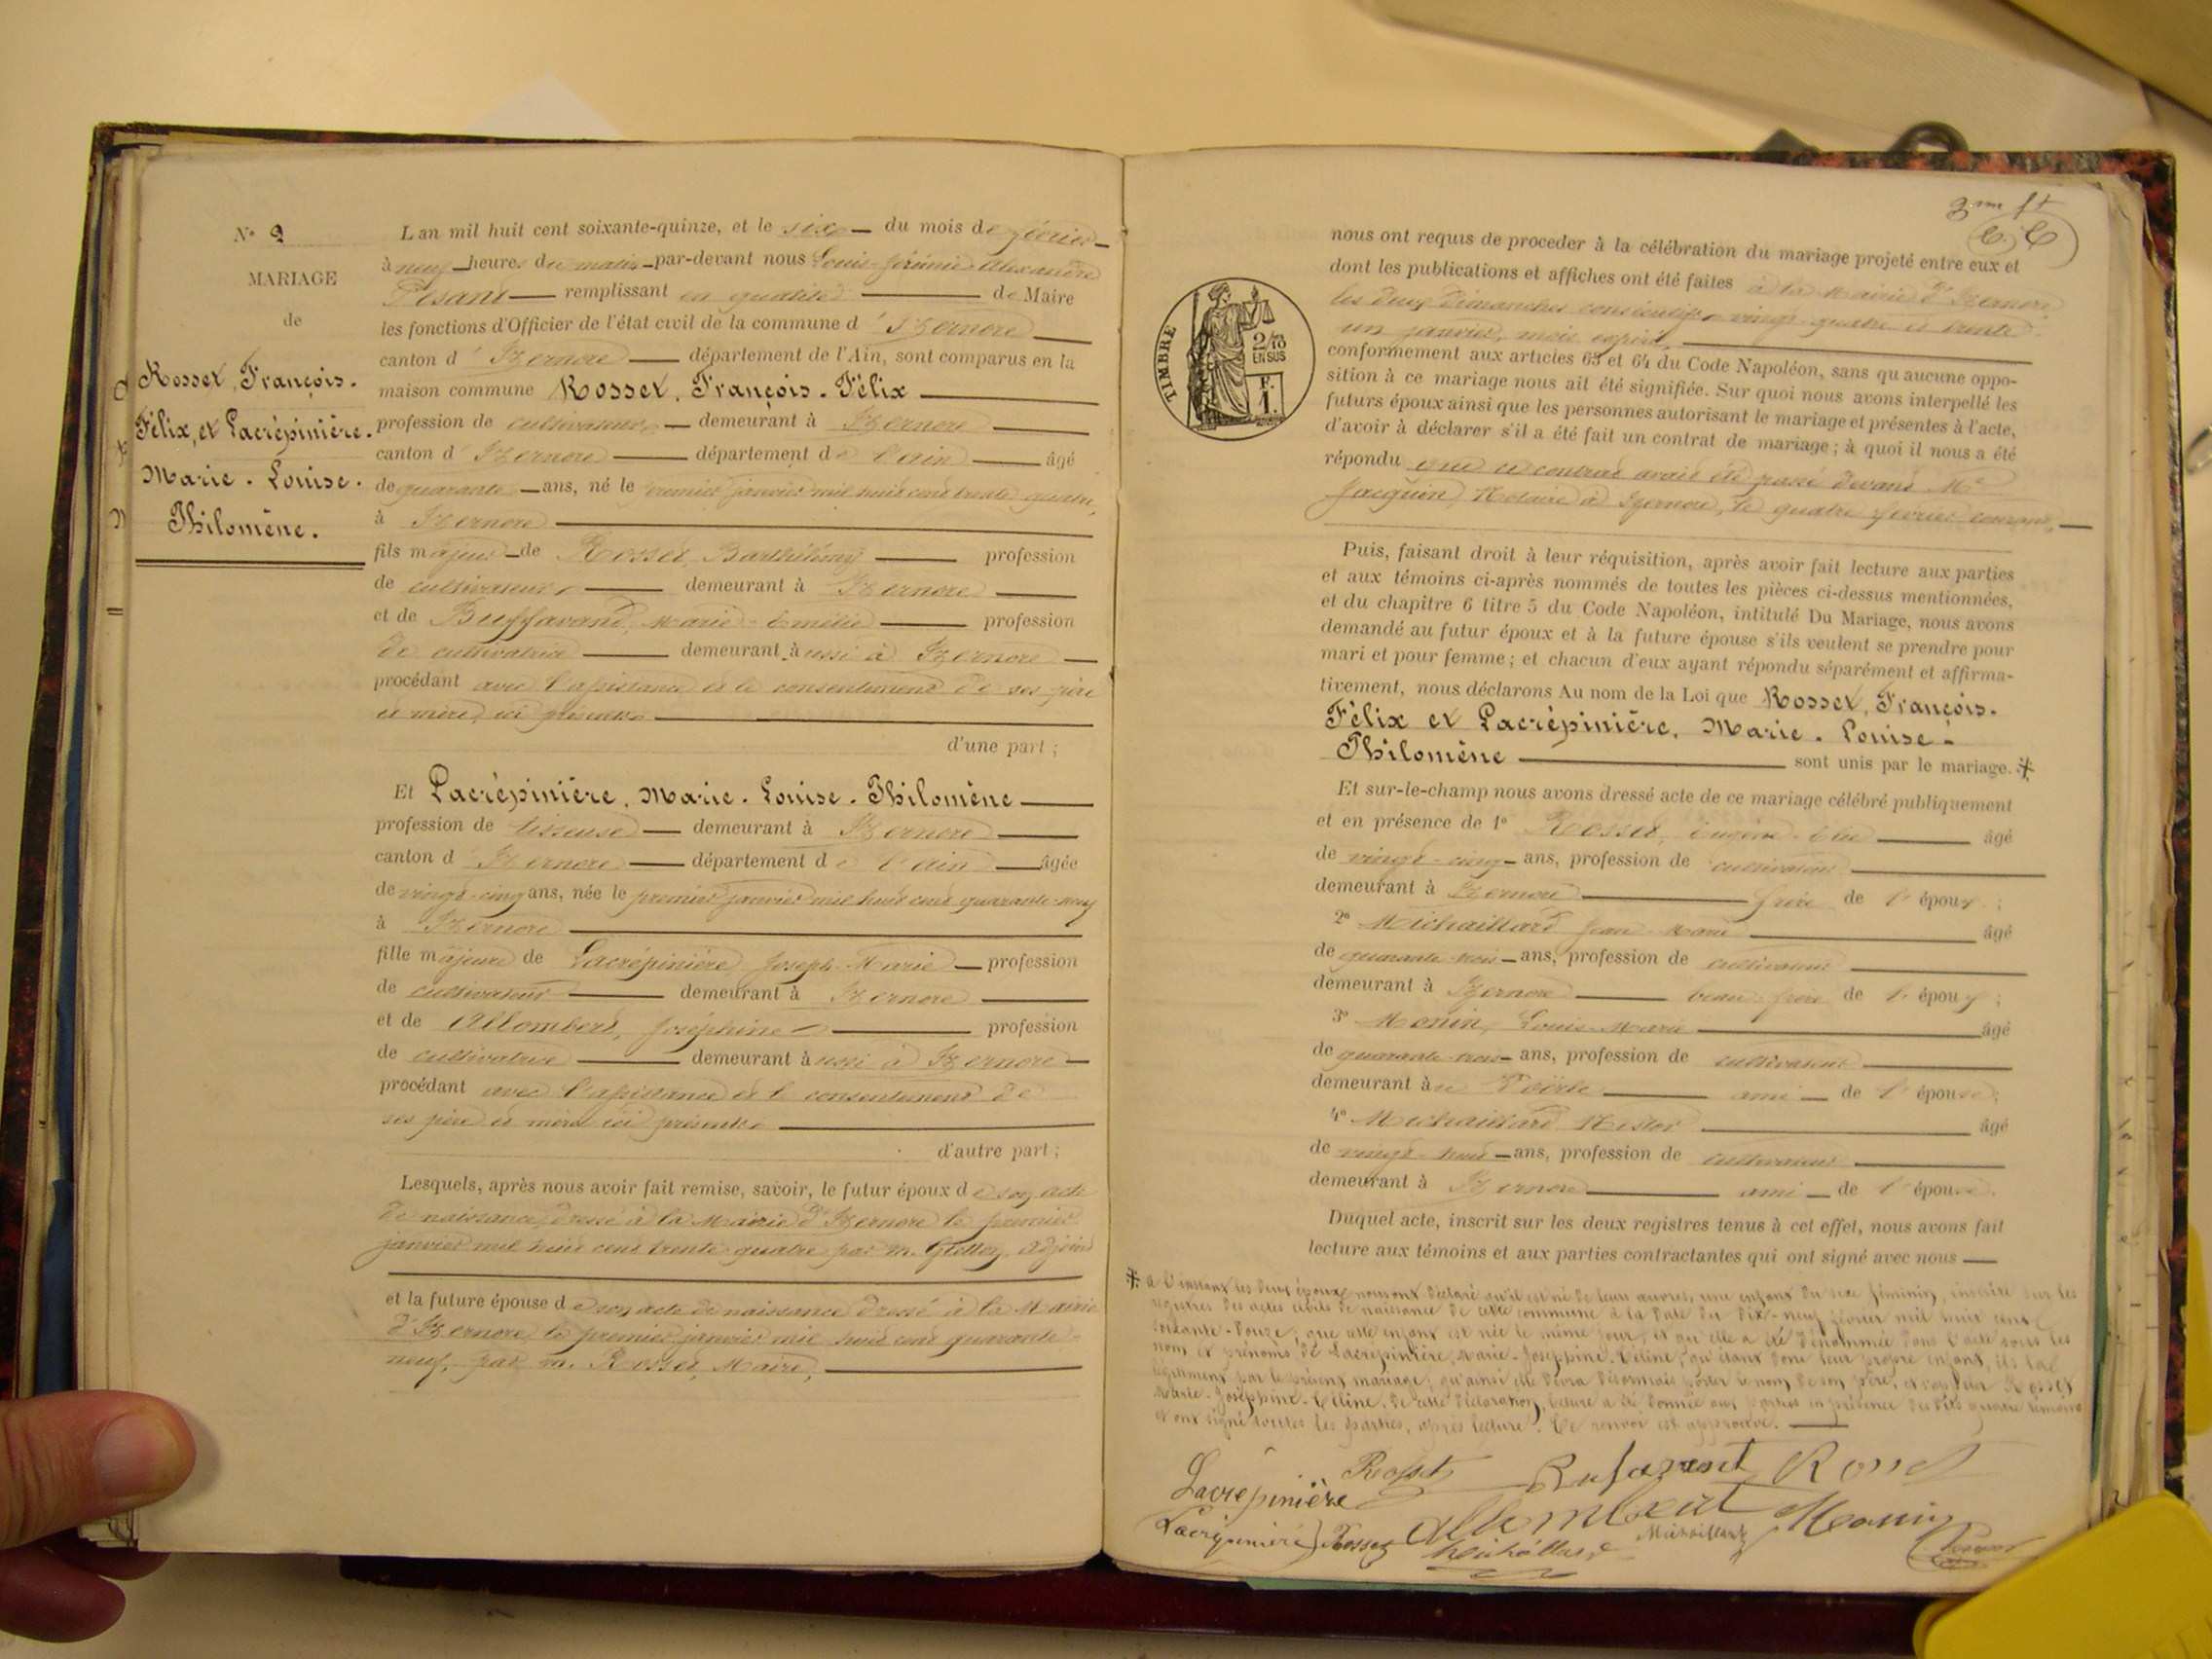 N° 2
MARIAGE
de
Rosset, François.
Félix, et Lacrépinière.
Marie. Louise.
Philomène.
L'an mil huit cent soixante-quinze, et le six du mois de février
à neuf heures du matin par-devant nous Louis-Jérémie Alexandre
Pesant remplissant en qualité de Maire
les fonctions d'Officier de l'état civil de la commune d'Izernore
canton d'Izernore département de l'Ain, sont comparus en la
maison commune Rosset, François. Félix
profession de cultivateur demeurant à Izernore
canton d'Izernore département de l'Ain âgé
de quarante ans, né le premier janvier mil huit cent trente quatre,
à Izernore
fils majeur de Rosset Barthélémy profession
de cultivateur demeurant à Izernore
et de Buffavand, Marie-Emélie profession
de cultivatrice demeurant aussi à Izernore
procédant avec l'assistance et le consentement de ses père
et mère, ici présents
d'une part ;
Et Lacrépinière, Marie. Louise. Philomène
profession de tisseuse demeurant à Izernore
canton d'Izernore département de l'Ain âgée
de vingt-cinq ans, née le premier janvier mil huit cent quarante-neuf
à Izernore
fille majeure de Lacrépinière Joseph-Marie profession
de cultivateur demeurant à Izernore
et de Allombert, Joséphine profession
de cultivatrice demeurant aussi à Izernore
procédant avec l'assistance et le consentement de
ses père et mère ici présents
d'autre part ;
Lesquels, après nous avoir fait remise, savoir, le futur époux de son acte
de naissance, dressé à la Mairie d'Izernore le premier
janvier mil huit cent trente-quatre par m. adjoint
et la future épouse de son acte de naissance dressé à la Mairie
d'Izernore le premier janvier mil huit cent quarante-
neuf, par m. Rosset, Maire,
3me ft
TIMBRE
2/10
EN SUS
F.
1.
nous ont requis de proceder à la célébration du mariage projeté entre eux et
dont les publications et affiches ont été faites à la Mairie d'Izernore
les deux dimanches consécutifs vingt-quatre et trente
un janvier, mois expiré,
conformement aux articles 63 et 64 du Code Napoléon, sans qu'aucune oppo-
sition à ce mariage nous ait été signifiée. Sur quoi nous avons interpellé les
futurs époux ainsi que les personnes autorisant le mariage et présentes à l'acte,
d'avoir à déclarer s'il a été fait un contrat de mariage ; à quoi il nous a été
répondu que ce contrat avait été passé devant Me
Jacquin, Notaire à Izernore, le quatre février courant,
Puis, faisant droit à leur réquisition, après avoir fait lecture aux parties
et aux témoins ci-après nommés de toutes les pièces ci-dessus mentionnées,
et du chapitre 6 titre 5 du Code Napoléon, intitulé Du Mariage, nous avons
demandé au futur époux et à la future épouse s'ils veulent se prendre pour
mari et pour femme ; et chacun d'eux ayant répondu séparément et affirma-
tivement, nous déclarons Au nom de la Loi que Rosset, François.
Félix et Lacrépinière, Marie. Louise.
Philomène sont unis par le mariage.
Et sur-le-champ nous avons dressé acte de ce mariage célébré publiquement
et en présence de 1° Rosset, Eugène âgé
de vingt-cinq ans, profession de cultivateur
demeurant à Izernore frère de l'époux ;
2° Michaillard Jean-Marie âgé
de quarante-trois ans, profession de cultivateur
demeurant à Izernore beau-frère de l'époux ;
3° Monin, Louis-Marie âgé
de quarante-trois ans, profession de cultivateur
demeurant à ami de l'épouse ;
4° Michaillard Nestor âgé
de vingt-huit ans, profession de cultivateur
demeurant à Izernore ami de l'épouse.
Duquel acte, inscrit sur les deux registres tenus à cet effet, nous avons fait
lecture aux témoins et aux parties contractantes qui ont signé avec nous
a l'instant les deux époux nous ont déclaré qu'il est né de leurs œuvres, une enfant du sexe féminin, inscrite sur les
registres des actes civils de naissance de cette commune à la date du dix-neuf février mil huit cent
soixante-douze ; que cette enfant est née le même jour, et qu'elle a été dénommée dans l'acte sous les
nom et prénoms de Lacrépinière, Marie-Joséphine-Céline ; qu'étant donc leur propre enfant, ils la
légitiment par le présent mariage ; qu'ainsi elle devra désormais porter le nom de son père, Rosset
Marie-Joséphine-Céline. De cette déclaration, lecture a été donnée aux parties en présence des dits quatre témoins
et ont signé toutes les parties, après lecture. Ce renvoi est approuvé.
Lacrépinière Rosset Bufavant Rosset
Lacrépinière Rosset Allombert Michaillard Monin
Michaillard